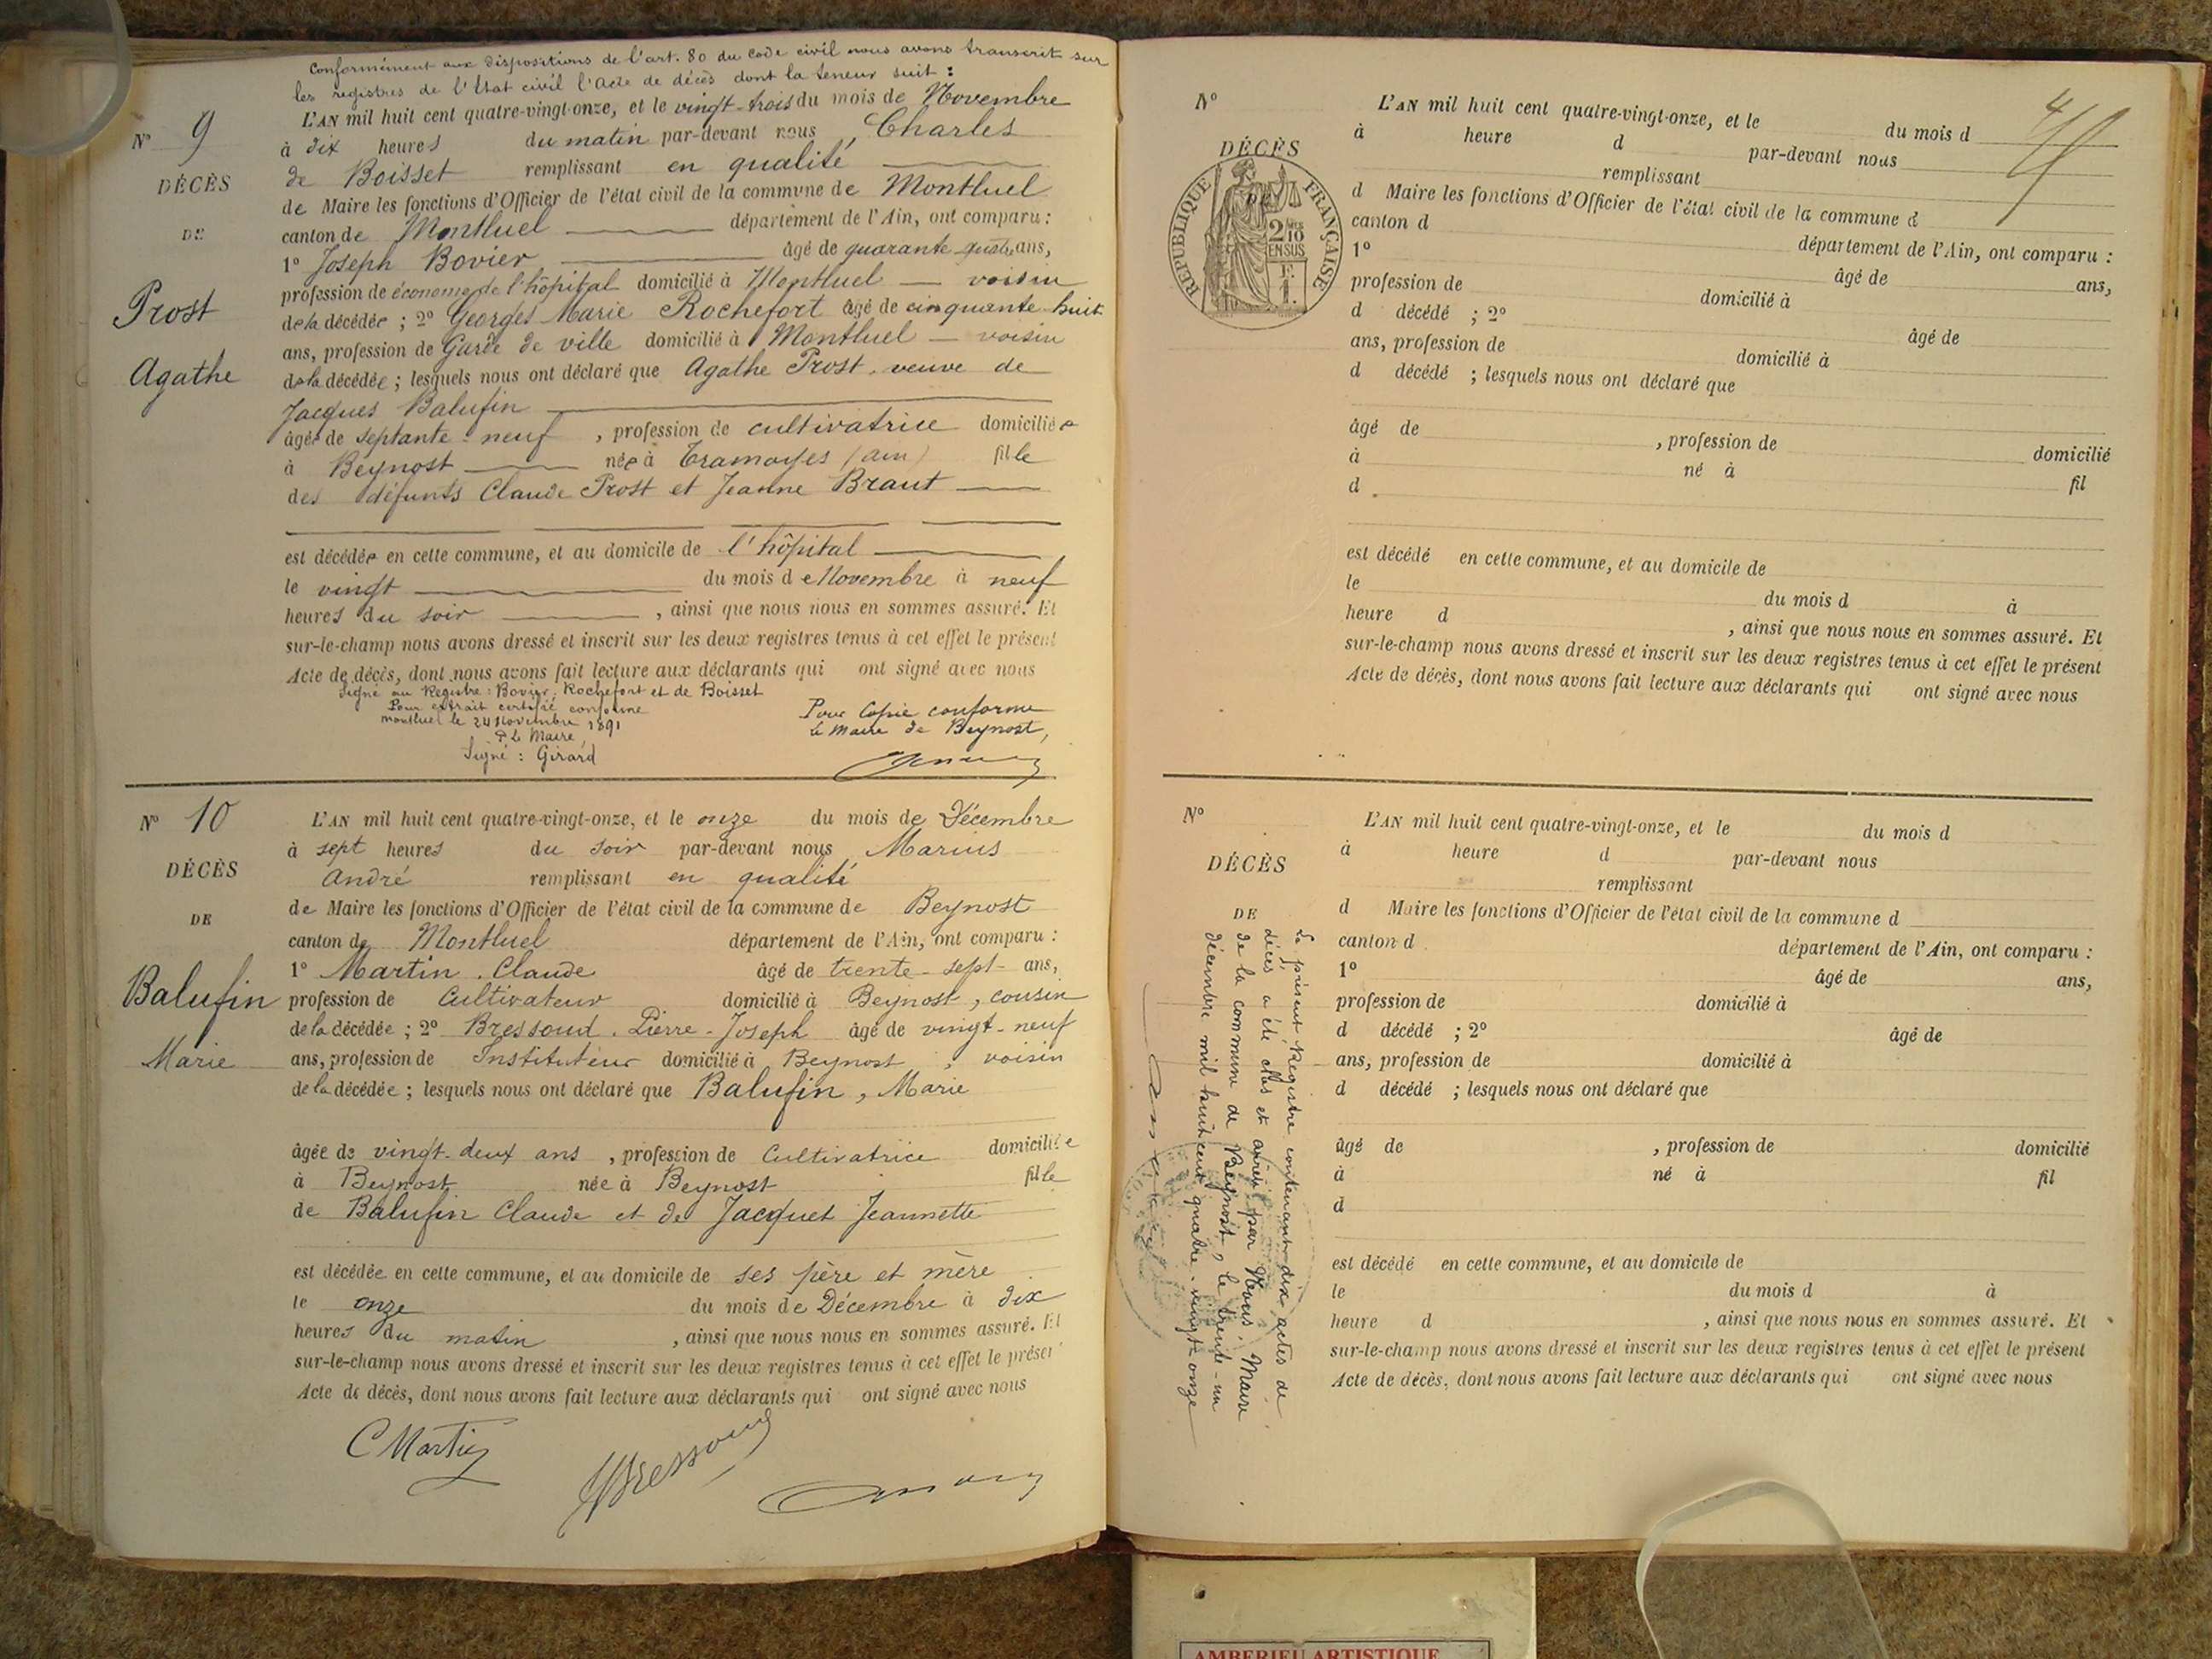 Conformément aux dispositions de l'art. 80 du code civil nous avons transcrit sur
les registres de l'Etat civil l'acte de décès dont la teneur suit :
N° 9
DÉCÈS
DE
Prost
Agathe
L'AN mil huit cent quatre-vingt-onze, et le vingt-trois du mois de Novembre
à dix heures du matin par-devant nous, Charles
de Boisset remplissant en qualité
de Maire les fonctions d'Officier de l'état civil de la commune de Montluel
canton de Montluel département de l'Ain, ont comparu :
1° Joseph Bovier âgé de quarante quatre ans,
profession de économe de l'hôpital domicilié à Montluel voisin
de la décédée ; 2° Georges Marie Rochefort âgé de cinquante-huit
ans, profession de Garde de ville domicilié à Montluel voisin
de la décédée ; lesquels nous ont déclaré que Agathe Prost, veuve de
Jacques Balufin
âgée de septante-neuf , profession de cultivatrice domiciliée
à Beynost née à Tramoyes (Ain) fille
des défunts Claude Prost et Jeanne Braut
est décédée en cette commune, et au domicile de l'hôpital
le vingt du mois de Novembre à neuf
heures du soir , ainsi que nous nous en sommes assuré. Et
sur-le-champ nous avons dressé et inscrit sur les deux registres tenus à cet effet le présent
Acte de décès, dont nous avons fait lecture aux déclarants qui ont signé avec nous
Signé au Registre : Bovier, Rochefort et de Boisset
Pour extrait certifié conforme
Montluel le 24 Novembre 1891
P. Le Maire,
Signé : Girard
Pour Copie conforme
Le Maire de Beynost,
N° 10
DÉCÈS
DE
Balufin
Marie
L'AN mil huit cent quatre-vingt-onze, et le onze du mois de Décembre
à sept heures du soir par-devant nous Marius
André remplissant en qualité
de Maire les fonctions d'Officier de l'état civil de la commune de Beynost
canton de Montluel département de l'Ain, ont comparu :
1° Martin, Claude âgé de trente-sept ans,
profession de Cultivateur domicilié à Beynost, cousin
de la décédée ; 2° Bressoud, Pierre-Joseph âgé de vingt-neuf
ans, profession de Instituteur domicilié à Beynost, voisin
de la décédée ; lesquels nous ont déclaré que Balufin, Marie
âgée de vingt-deux ans , profession de Cultivatrice domiciliée
à Beynost née à Beynost fille
de Balufin Claude et de Jacquet Jeannette
est décédée en cette commune, et au domicile de ses père et mère
le onze du mois de Décembre à dix
heures du matin , ainsi que nous nous en sommes assuré. Et
sur-le-champ nous avons dressé et inscrit sur les deux registres tenus à cet effet le présent
Acte de décès, dont nous avons fait lecture aux déclarants qui ont signé avec nous
C Martin
Bressoud
N°
DÉCÈS
DE
RÉPUBLIQUE FRANÇAISE
2/10
EN SUS
L'AN mil huit cent quatre-vingt-onze, et le du mois d
à heure d par-devant nous
remplissant
d Maire les fonctions d'Officier de l'état civil de la commune d
canton d département de l'Ain, ont comparu :
1° âgé de ans,
profession de domicilié à
d décédé ; 2° âgé de
ans, profession de domicilié à
d décédé ; lesquels nous ont déclaré que
âgé de , profession de domicilié
à né à fil
d
est décédé en cette commune, et au domicile de
le du mois d à
heure d , ainsi que nous nous en sommes assuré. Et
sur-le-champ nous avons dressé et inscrit sur les deux registres tenus à cet effet le présent
Acte de décès, dont nous avons fait lecture aux déclarants qui ont signé avec nous
N°
DÉCÈS
DE
L'AN mil huit cent quatre-vingt-onze, et le du mois d
à heure d par-devant nous
remplissant
d Maire les fonctions d'Officier de l'état civil de la commune d
canton d département de l'Ain, ont comparu :
1° âgé de ans,
profession de domicilié à
d décédé ; 2° âgé de
ans, profession de domicilié à
d décédé ; lesquels nous ont déclaré que
âgé de , profession de domicilié
à né à fil
d
est décédé en cette commune, et au domicile de
le du mois d à
heure d , ainsi que nous nous en sommes assuré. Et
sur-le-champ nous avons dressé et inscrit sur les deux registres tenus à cet effet le présent
Acte de décès, dont nous avons fait lecture aux déclarants qui ont signé avec nous
Le présent Registre contenant dix actes de
décès a été clos et arrêté par Nous, Maire
de la commune de Beynost, le trente-un
décembre mil huit cent quatre-vingt onze
AMBERIEU ARTISTIQUE